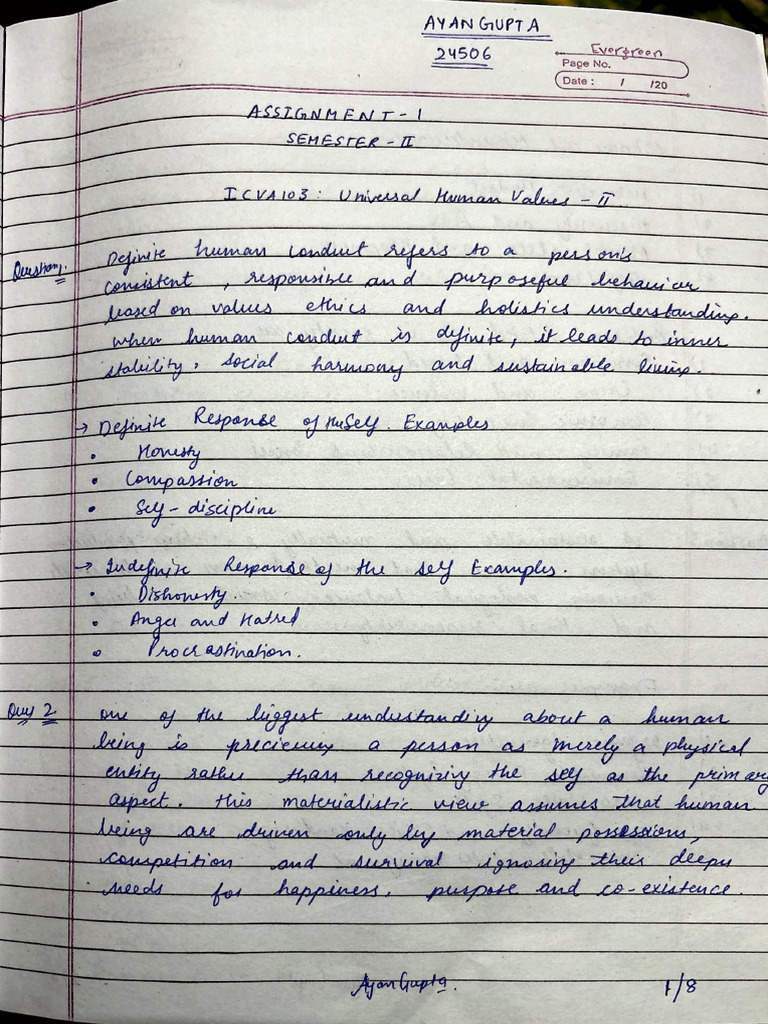 AYAN GUPTA
24506
Evergreen
Page No.
Date : / /20
ASSIGNMENT - 1
SEMESTER - II
ICVA103 : Universal Human Values - II
Question 1. Definite human conduct refers to a person's
consistent, responsible and purposeful behavior
based on values ethics and holistics understanding.
when human conduct is definite, it leads to inner
stability, social harmony and sustainable living.
→ Definite Response of the Self. Examples
• Honesty
• Compassion
• Self - discipline
→ Indefinite Response of the self Examples.
• Dishonesty.
• Anger and Hatred
• Procrastination.
Ques 2 one of the biggest understanding about a human
being is a person as merely a physical
entity rather than recognizing the self as the primary
aspect. this materialistic view assumes that human
being are driven only by material possessions,
competition and survival ignoring their deeper
needs for happiness, purpose and co-existence.
Ayan Gupta.
1/8